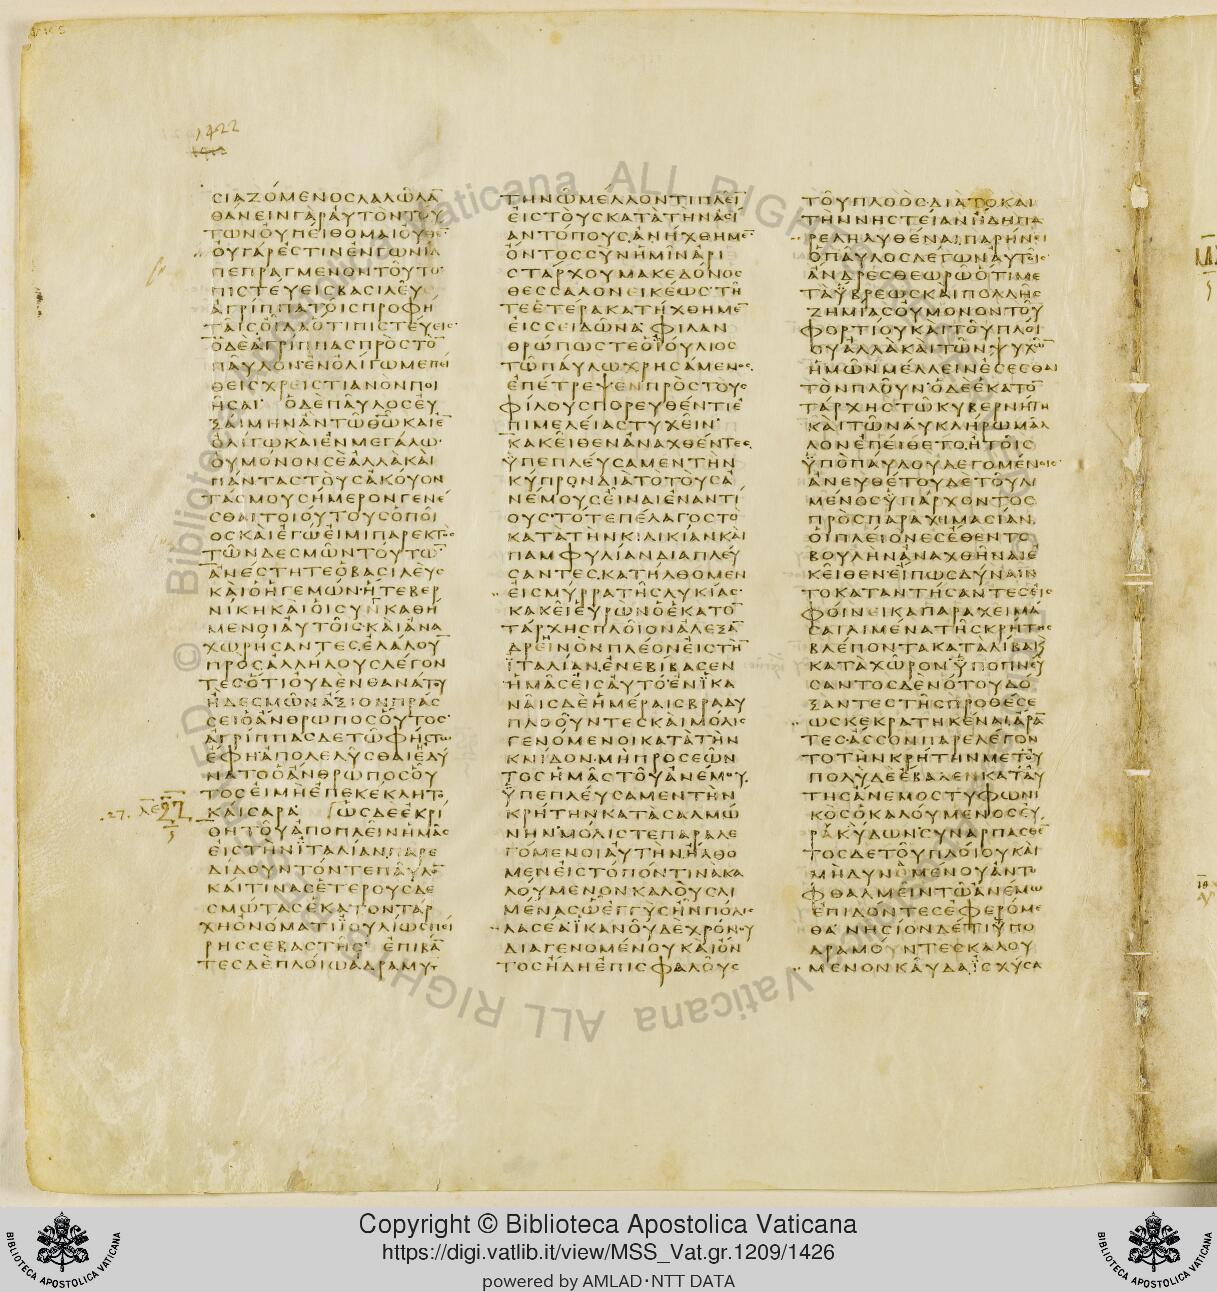 1422
ϹΙΑΖΟΜΕΝΟϹΛΑΛΩΛΑ̅
ΘΑΝΕΙΝΓΑΡΑΥΤΟΝΤΟΥ
ΤΩΝΟΥΠΕΙΘΟΜΑΙΟΥΘΕ̅
ΟΥΓΑΡΕϹΤΙΝΕΝΓΩΝΙΑ
ΠΕΠΡΑΓΜΕΝΟΝΤΟΥΤΟ
ΠΙϹΤΕΥΕΙϹΒΑϹΙΛΕΥ
ΑΓΡΙΠΠΑΤΟΙϹΠΡΟΦΗ
ΤΑΙϹΟΙΔΑΟΤΙΠΙϹΤΕΥΕΙϹ
ΟΔΕΑΓΡΙΠΠΑϹΠΡΟϹΤΟ̅
ΠΑΥΛΟΝΕΝΟΛΙΓΩΜΕΠΕΙ
ΘΕΙϹΧΡΕΙϹΤΙΑΝΟΝΠΟΙ
ΗϹΑΙ ΟΔΕΠΑΥΛΟϹΕΥ
ΞΑΙΜΗΝΑΝΤΩΘΩΚΑΙΕ̅
ΟΛΙΓΩΚΑΙΕΝΜΕΓΑΛΩ
ΟΥΜΟΝΟΝϹΕΑΛΛΑΚΑΙ
ΠΑΝΤΑϹΤΟΥϹΑΚΟΥΟΝ
ΤΑϹΜΟΥϹΗΜΕΡΟΝΓΕΝΕ
ϹΘΑΙΤΟΙΟΥΤΟΥϹΟΠΟΙ
ΟϹΚΑΙΕΓΩΕΙΜΙΠΑΡΕΚΤΟϹ
ΤΩΝΔΕϹΜΩΝΤΟΥΤΩ̅
ΑΝΕϹΤΗΤΕΟΒΑϹΙΛΕΥϹ
ΚΑΙΟΗΓΕΜΩΝΗΤΕΒΕΡ
ΝΙΚΗΚΑΙΟΙϹΥΝΚΑΘΗ
ΜΕΝΟΙΑΥΤΟΙϹΚΑΙΑΝΑ
ΧΩΡΗϹΑΝΤΕϹΕΛΑΛΟΥ̅
ΠΡΟϹΑΛΛΗΛΟΥϹΛΕΓΟΝ
ΤΕϹΟΤΙΟΥΔΕΝΘΑΝΑΤΟΥ
ΗΔΕϹΜΩΝΑΞΙΟΝΠΡΑϹ
ϹΕΙΟΑΝΘΡΩΠΟϹΟΥΤΟϹ
ΑΓΡΙΠΠΑϹΔΕΤΩΦΗϹΤΩ
ΕΦΗΑΠΟΛΕΛΥϹΘΑΙΕΔΥ
ΝΑΤΟΟΑΝΘΡΩΠΟϹΟΥ
ΤΟϹΕΙΜΗΕΠΕΚΕΚΛΗΤΟ
.27. ΚΑΙϹΑΡΑ ΩϹΔΕΕΚΡΙ
ΘΗΤΟΥΑΠΟΠΛΕΙΝΗΜΑϹ
ΕΙϹΤΗΝΪΤΑΛΙΑΝΠΑΡΕ
ΔΙΔΟΥΝΤΟΝΤΕΠΑΥΛΟ̅
ΚΑΙΤΙΝΑϹΕΤΕΡΟΥϹΔΕ
ϹΜΩΤΑϹΕΚΑΤΟΝΤΑΡ
ΧΗΟΝΟΜΑΤΙΪΟΥΛΙΩϹΠΕΙ
ΡΗϹϹΕΒΑϹΤΗϹ ΕΠΙΒΑ̅
ΤΕϹΔΕΠΛΟΙΩΑΔΡΑΜΥΤ
ΤΗΝΩΜΕΛΛΟΝΤΙΠΛΕΙ̅
ΕΙϹΤΟΥϹΚΑΤΑΤΗΝΑϹΙ
ΑΝΤΟΠΟΥϹΑΝΗΧΘΗΜΕ̅
ΟΝΤΟϹϹΥΝΗΜΙΝΑΡΙ
ϹΤΑΡΧΟΥΜΑΚΕΔΟΝΟϹ
ΘΕϹϹΑΛΟΝΕΙΚΕΩϹΤΗ
ΤΕΕΤΕΡΑΚΑΤΗΧΘΗΜΕ̅
ΕΙϹϹΕΙΔΩΝΑΦΙΛΑΝ
ΘΡΩΠΩϹΤΕΟΪΟΥΛΙΟϹ
ΤΩΠΑΥΛΩΧΡΗϹΑΜΕΝΟϹ
ΕΠΕΤΡΕΨΕΝΠΡΟϹΤΟΥϹ
ΦΙΛΟΥϹΠΟΡΕΥΘΕΝΤΙΕ
ΠΙΜΕΛΕΙΑϹΤΥΧΕΙΝ
ΚΑΚΕΙΘΕΝΑΝΑΧΘΕΝΤΕϹ
ΫΠΕΠΛΕΥϹΑΜΕΝΤΗΝ
ΚΥΠΡΟΝΔΙΑΤΟΤΟΥϹΑ
ΝΕΜΟΥϹΕΙΝΑΙΕΝΑΝΤΙ
ΟΥϹΤΟΤΕΠΕΛΑΓΟϹΤΟ
ΚΑΤΑΤΗΝΚΙΛΙΚΙΑΝΚΑΙ
ΠΑΜΦΥΛΙΑΝΔΙΑΠΛΕΥ
ϹΑΝΤΕϹΚΑΤΗΛΘΟΜΕΝ
ΕΙϹΜΥΡΡΑΤΗϹΛΥΚΙΑϹ
ΚΑΚΕΙΕΥΡΩΝΟΕΚΑΤΟ̅
ΤΑΡΧΗϹΠΛΟΙΟΝΑΛΕΞΑ̅
ΔΡΕΙΝΟΝΠΛΕΟΝΕΙϹΤΗ̅
ΪΤΑΛΙΑΝΕΝΕΒΙΒΑϹΕΝ
ΗΜΑϹΕΙϹΑΥΤΟΕΝΪΚΑ
ΝΑΙϹΔΕΗΜΕΡΑΙϹΒΡΑΔΥ
ΠΛΟΟΥΝΤΕϹΚΑΙΜΟΛΙϹ
ΓΕΝΟΜΕΝΟΙΚΑΤΑΤΗΝ
ΚΝΙΔΟΝΜΗΠΡΟϹΕΩΝ
ΤΟϹΗΜΑϹΤΟΥΑΝΕΜΟΥ
ΫΠΕΠΛΕΥϹΑΜΕΝΤΗΝ
ΚΡΗΤΗΝΚΑΤΑϹΑΛΜΩ
ΝΗΝΜΟΛΙϹΤΕΠΑΡΑΛΕ
ΓΟΜΕΝΟΙΑΥΤΗΝΗΛΘΟ
ΜΕΝΕΙϹΤΟΠΟΝΤΙΝΑΚΑ
ΛΟΥΜΕΝΟΝΚΑΛΟΥϹΛΙ
ΜΕΝΑϹΩΕΓΓΥϹΗΝΠΟΛΙϹ
ΛΑϹΕΑΪΚΑΝΟΥΔΕΧΡΟΝΟΥ
ΔΙΑΓΕΝΟΜΕΝΟΥΚΑΙΟΝ
ΤΟϹΗΔΗΕΠΙϹΦΑΛΟΥϹ
ΤΟΥΠΛΟΟϹΔΙΑΤΟΚΑΙ
ΤΗΝΝΗϹΤΕΙΑΝΗΔΗΠΑ
ΡΕΛΗΛΥΘΕΝΑΙΠΑΡΗΝΕΙ
ΟΠΑΥΛΟϹΛΕΓΩΝΑΥΤΟΙϹ
ΑΝΔΡΕϹΘΕΩΡΩΟΤΙΜΕ
ΤΑΫΒΡΕΩϹΚΑΙΠΟΛΛΗϹ
ΖΗΜΙΑϹΟΥΜΟΝΟΝΤΟΥ
ΦΟΡΤΙΟΥΚΑΙΤΟΥΠΛΟΙ
ΟΥΑΛΛΑΚΑΙΤΩΝΨΥΧΩ̅
ΗΜΩΝΜΕΛΛΕΙΝΕϹΕϹΘΑΙ
ΤΟΝΠΛΟΥΝΟΔΕΕΚΑΤΟ̅
ΤΑΡΧΗϹΤΩΚΥΒΕΡΝΗΤΗ
ΚΑΙΤΩΝΑΥΚΛΗΡΩΜΑΛ
ΛΟΝΕΠΕΙΘΕΤΟΗΤΟΙϹ
ΫΠΟΠΑΥΛΟΥΛΕΓΟΜΕΝΟΙϹ
ΑΝΕΥΘΕΤΟΥΔΕΤΟΥΛΙ
ΜΕΝΟϹΫΠΑΡΧΟΝΤΟϹ
ΠΡΟϹΠΑΡΑΧΙΜΑϹΙΑΝ
ΟΙΠΛΕΙΟΝΕϹΕΘΕΝΤΟ
ΒΟΥΛΗΝΑΝΑΧΘΗΝΑΙΕ
ΚΕΙΘΕΝΕΙΠΩϹΔΥΝΑΙΝ
ΤΟΚΑΤΑΝΤΗϹΑΝΤΕϹΕΙϹ
ΦΟΙΝΕΙΚΑΠΑΡΑΧΕΙΜΑ
ϹΑΙΛΙΜΕΝΑΤΗϹΚΡΗΤΗϹ
ΒΛΕΠΟΝΤΑΚΑΤΑΛΙΒΑΚΑΙ
ΚΑΤΑΧΩΡΟΝΫΠΟΠΝΕΥ
ϹΑΝΤΟϹΔΕΝΟΤΟΥΔΟ
ΞΑΝΤΕϹΤΗϹΠΡΟΘΕϹΕ
ΩϹΚΕΚΡΑΤΗΚΕΝΑΙΑΡΑ̅
ΤΕϹΑϹϹΟΝΠΑΡΕΛΕΓΟΝ
ΤΟΤΗΝΚΡΗΤΗΝΜΕΤΟΥ
ΠΟΛΥΔΕΕΒΑΛΕΝΚΑΤΑΥ
ΤΗϹΑΝΕΜΟϹΤΥΦΩΝΙ
ΚΟϹΟΚΑΛΟΥΜΕΝΟϹΕΥ
ΡΑΚΥΔΩΝϹΥΝΑΡΠΑϹΘΕ̅
ΤΟϹΔΕΤΟΥΠΛΟΙΟΥΚΑΙ
ΜΗΔΥΝΟΜΕΝΟΥΑΝΤΟ
ΦΘΑΛΜΕΙΝΤΩΑΝΕΜΩ
ΕΠΙΔΟΝΤΕϹΕΦΕΡΟΜΕ
ΘΑΝΗϹΙΟΝΔΕΤΙΫΠΟ
ΔΡΑΜΟΥΝΤΕϹΚΑΛΟΥ
ΜΕΝΟΝΚΑΥΔΑΪϹΧΥϹΑ
Copyright © Biblioteca Apostolica Vaticana
https://digi.vatlib.it/view/MSS_Vat.gr.1209/1426
powered by AMLAD·NTT DATA
BIBLIOTECA APOSTOLICA VATICANA
BIBLIOTECA APOSTOLICA VATICANA